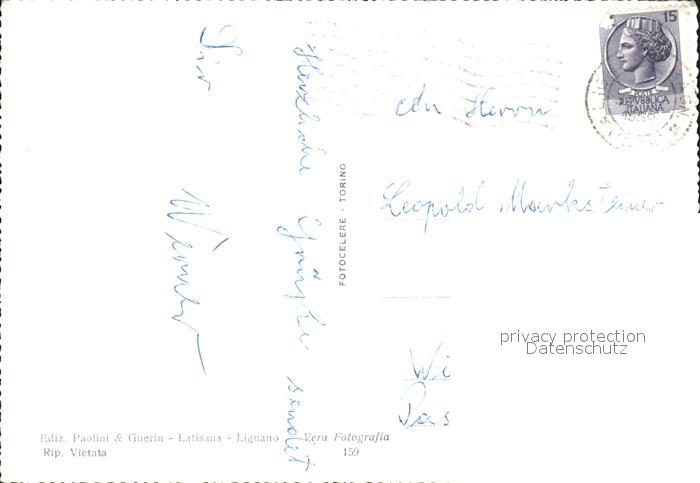 15
REPVBBLICA
ITALIANA
An Herrn
Leopold Marksteiner
Wi
Pas
Herzliche Grüße sendet
Dir
Werner
FOTOCELERE - TORINO
privacy protection
Datenschutz
Ediz. Paolini & Guerin - Latisana - Lignano Vera Fotografia
Rip. Vietata 159